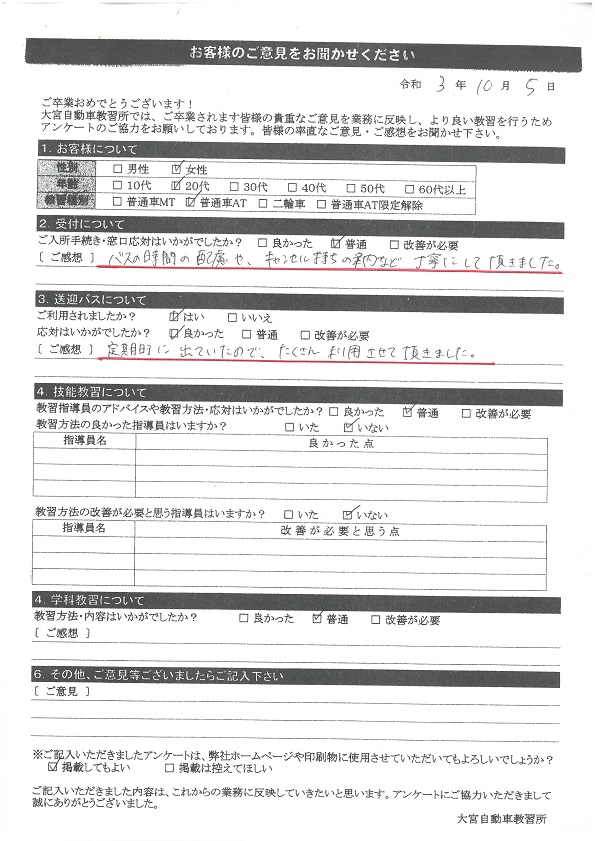 お客様のご意見をお聞かせください
令和 3 年 10 月 5 日
ご卒業おめでとうございます！
大宮自動車教習所では、ご卒業されます皆様の貴重なご意見を業務に反映し、より良い教習を行うため
アンケートのご協力をお願いしております。皆様の率直なご意見・ご感想をお聞かせ下さい。
1. お客様について
性別 □ 男性 ☑ 女性
年齢 □ 10代 ☑ 20代 □ 30代 □ 40代 □ 50代 □ 60代以上
教習種別 □ 普通車MT ☑ 普通車AT □ 二輪車 □ 普通車AT限定解除
2. 受付について
ご入所手続き・窓口応対はいかがでしたか？ □ 良かった ☑ 普通 □ 改善が必要
[ ご感想 ] バスの時間の配慮や、キャンセル待ちの案内など丁寧にして頂きました。
3. 送迎バスについて
ご利用されましたか？ ☑ はい □ いいえ
応対はいかがでしたか？ ☑ 良かった □ 普通 □ 改善が必要
[ ご感想 ] 定期的に出ていたので、たくさん利用させて頂きました。
4. 技能教習について
教習指導員のアドバイスや教習方法・応対はいかがでしたか？ □ 良かった ☑ 普通 □ 改善が必要
教習方法の良かった指導員はいますか？ □ いた ☑ いない
指導員名 良かった点
教習方法の改善が必要と思う指導員はいますか？ □ いた ☑ いない
指導員名 改善が必要と思う点
4. 学科教習について
教習方法・内容はいかがでしたか？ □ 良かった ☑ 普通 □ 改善が必要
[ ご感想 ]
6. その他、ご意見等ございましたらご記入下さい
[ ご意見 ]
※ご記入いただきましたアンケートは、弊社ホームページや印刷物に使用させていただいてもよろしいでしょうか？
☑ 掲載してもよい □ 掲載は控えてほしい
ご記入いただきました内容は、これからの業務に反映していきたいと思います。アンケートにご協力いただきまして
誠にありがとうございました。
大宮自動車教習所